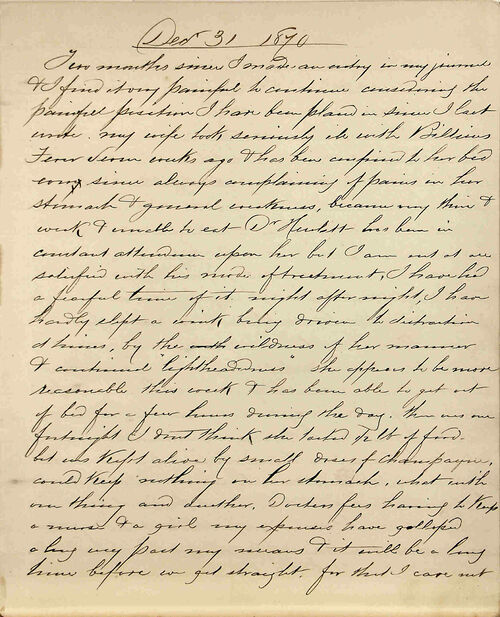 Decr 31 1870
Two months since I made an entry in my journal
& I find it very painful to continue considering the
painful position I have been placed in since I last
wrote. my wife took seriously ill with Billious
Fever seven weeks ago & has been confined to her bed
ever since always complaining of pains in her
stomach & general weakness, became very thin &
weak & unable to eat Dr Hewlett has been in
constant attendance upon her but I am not at all
satisfied with his mode of treatment, I have had
a fearful time of it. night after night, I have
hardly slept a wink, being driven to distraction
at times, by the wildness of her manner
& continual "lightheadedness" she appears to be more
reasonable this week & has been able to get out
of bed for a few hours during the day. there was one
fortnight I dont think she tasted lb of food.
but was kept alive by small doses of Champagne,
could keep nothing on her stomach, what with
one thing and another, Doctors fees having to keep
a nurse & a girl my expenses have galloped
along way past my means & it will be a long
time before we get straight, for that I care not